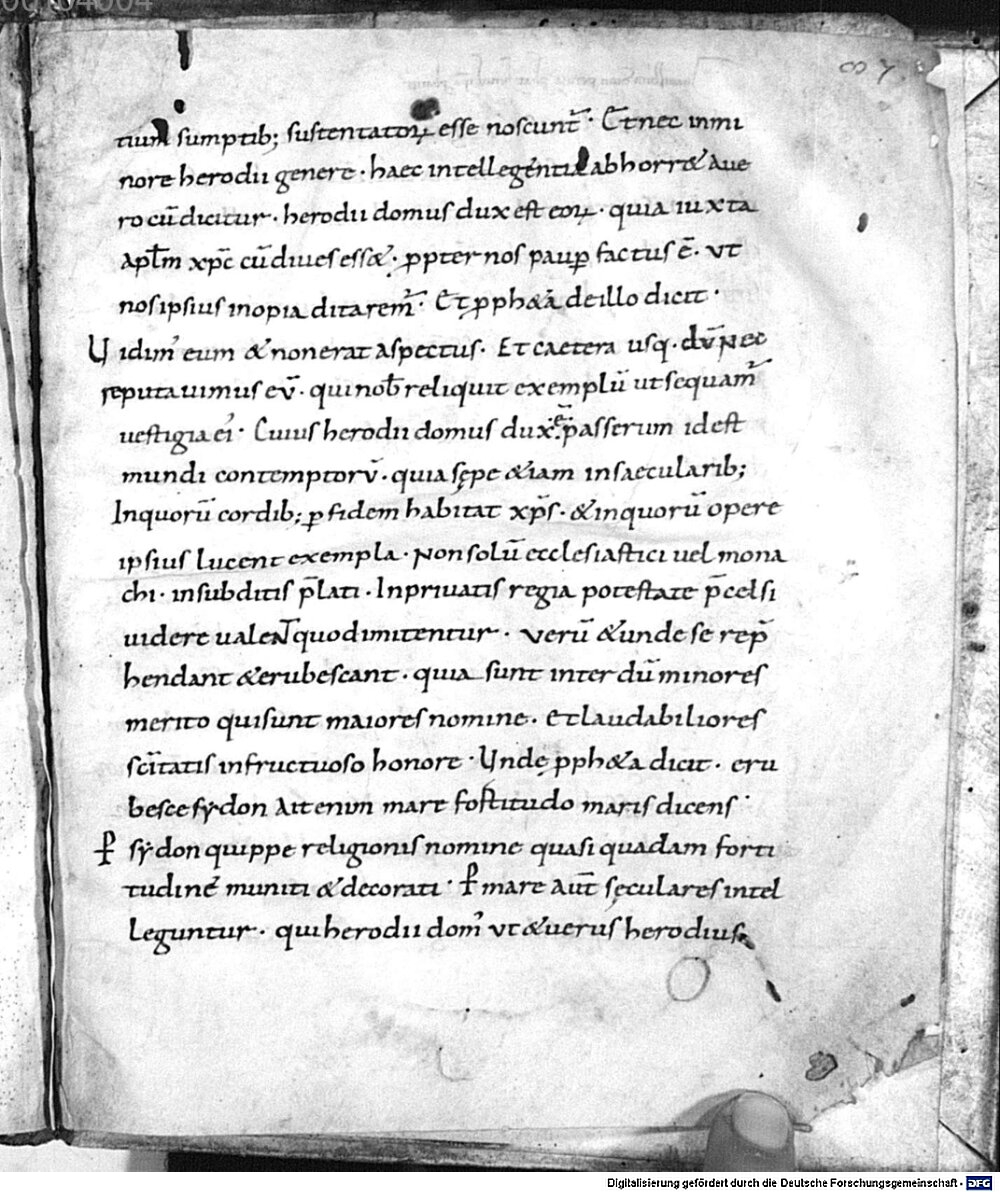 tium sumptib; sustentatoꝝ esse noscunt᷑ · Et nec inmi
nore herodii genere · haec intellegentia abhorr& aue
ro cū dicitur · herodii domus dux est eoꝝ · quia iuxta
apłm xp̄c cū diues ess& · ꝓpter nos pauꝑ factus ē · ut
nos ipsius inopia ditarem᷒ · Et ꝓph&a de illo dicit ·
Uidim᷒ eum & non erat aspectus · Et caetera usq · dū nec
reputauimus eū · qui nob̄ reliquit exemplū ut sequam᷒
uestigia ei᷒ · Cuius herodii domus dux ē passerum id est
mundi contemptorū · quia sępe &iam in saecularib;
In quorū cordib; ꝑ fidem habitat xp̄s · & in quorū opere
ipsius lucent exempla · Non solū ecclesiastici uel mona
chi · in subditis p̄lati · In priuatis regia potestate p̄celsi
uidere ualeNT quod imitentur · uerū & unde se rep̄
hendant & erubescant · quia sunt inter dū minores
merito qui sunt maiores nomine · et laudabiliores
scītatis infructuoso honore · Unde ꝓph&a dicit · eru
besce sydon ait enim mare fostitudo maris dicens ·
P sydon quippe religionis nomine quasi quadam forti
tudine muniti & decorati · P mare aut̄ sęculares intel
leguntur · qui herodii dom᷒ ut & uerus herodius
Digitalisierung gefördert durch die Deutsche Forschungsgemeinschaft · DFG